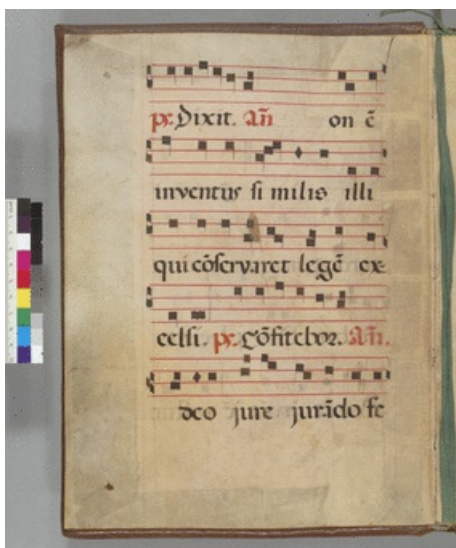 ps. Dixit. Añ on ē
inventus si milis illi
qui cōservaret legē ex-
celsi. ps. Cōfitebor. Añ.
deo jure jurādo fe